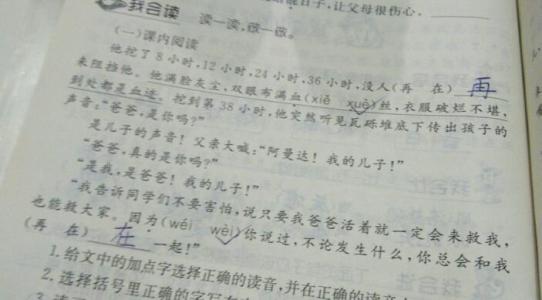 日子,让父母很伤心。
我会读 读一读,做一做。
(一)课内阅读
他挖了8小时,12小时,24小时,36小时,没人(再 在) 再
来阻挡他。他满脸灰尘,双眼布满血(xiě xuè)丝,衣服破烂不堪,
到处都是血迹。挖到第38小时,他突然听见瓦砾堆底下传出孩子的
声音:“爸爸,是你吗?”
是儿子的声音!父亲大喊:“阿曼达!我的儿子!”
“爸爸,真的是你吗?”
“是我,是爸爸!我的儿子!”
“我告诉同学们不要害怕,说只要我爸爸活着就一定会来救我,
也能救大家。因为(wéi wèi)你说过,不论发生什么,你总会和我
(再 在) 在 一起!”
1.给文中的加点字选择正确的读音,并在正确的
2.选择括号里正确的字写